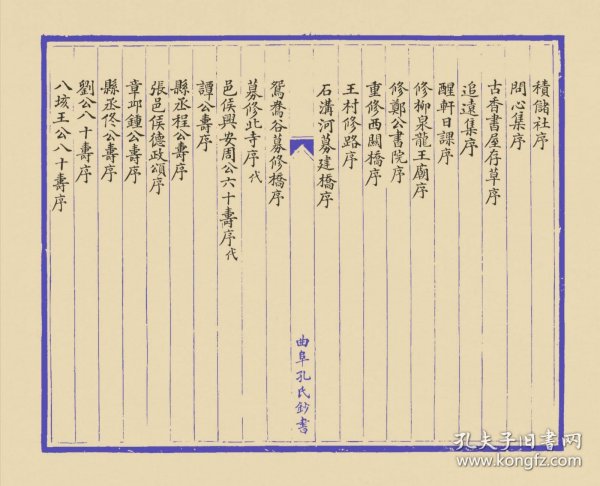 積儲社序
問心集序
古香書屋存草序
追遠集序
醒軒日課序
修柳泉龍王廟序
修鄭公書院序
重修西關橋序
王村修路序
石溝河募建橋序
曲阜孔氏鈔書
鴛鴦谷募修橋序
募修北寺序代
邑侯興安周公六十壽序代
譚公壽序
縣丞程公壽序
張邑侯德政頌序
章邱鍾公壽序
縣丞佟公壽序
劉公八十壽序
八垓王公八十壽序
孔夫子旧書网
www.kongfz.com